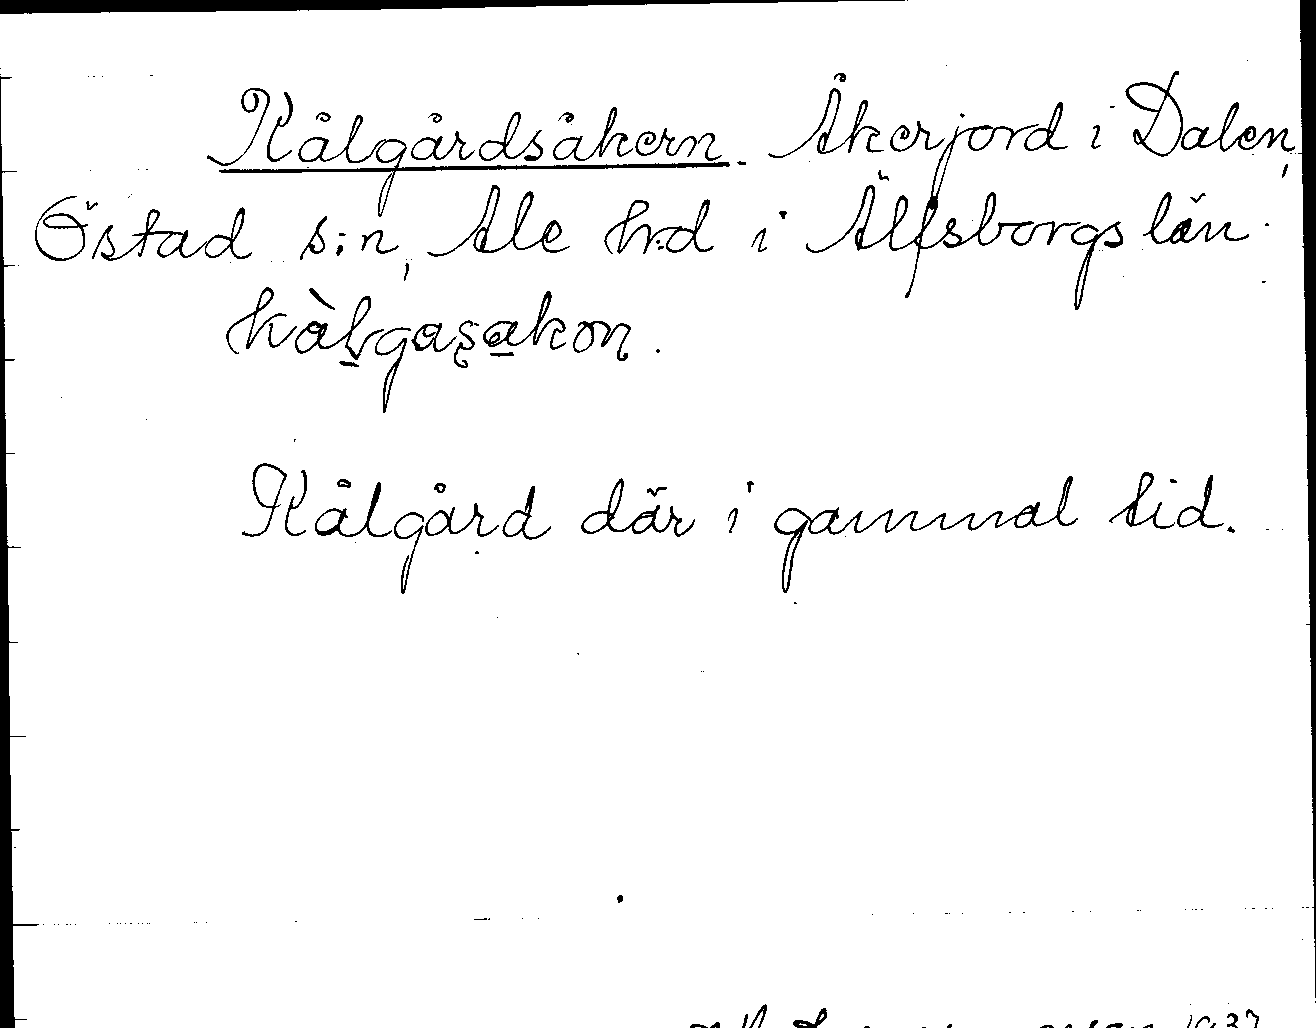 Kålgårdsåkern. Åkerjord i Dalen,
Östad s:n, Ale h:d i Älfsborgs län.
Kålgård där i gammal tid.
1937